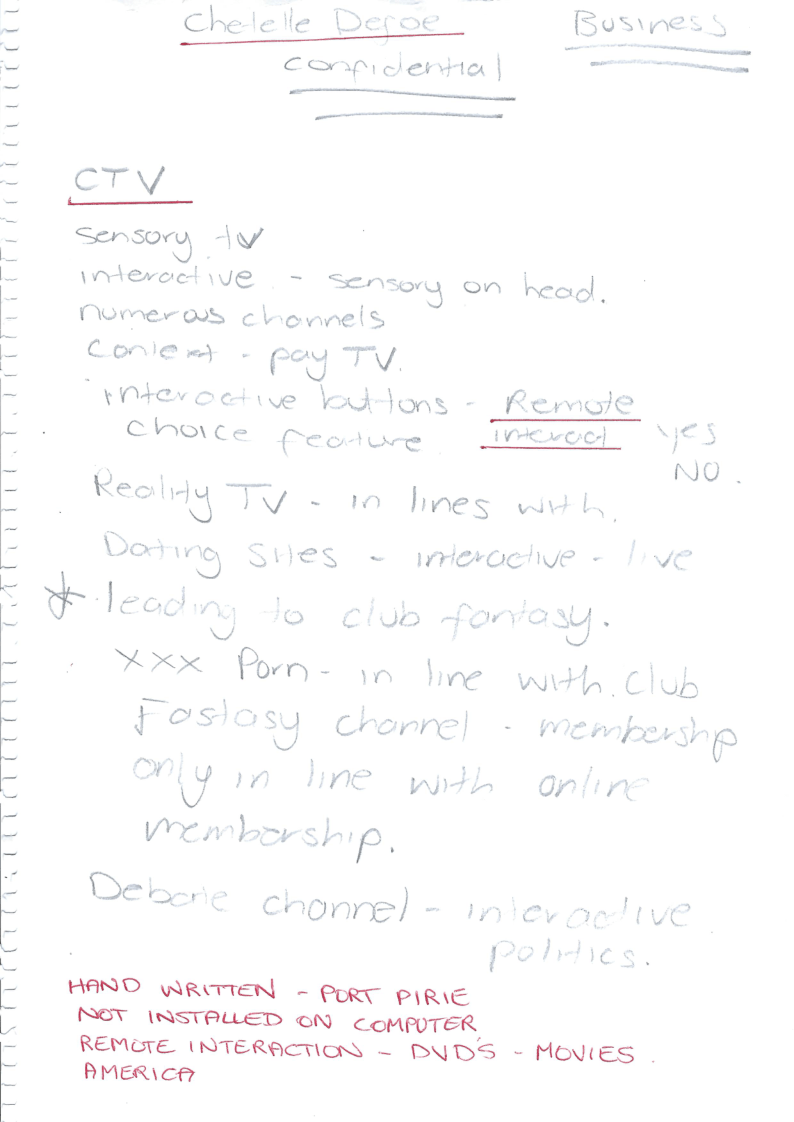 Chelelle Defoe Business
Confidential
CTV
sensory tv
interactive - sensory on head.
numerous channels
Context - pay TV.
interactive buttons - Remote
choice feature interact yes
NO.
Reality TV - in lines with.
Dating Sites - interactive - live
leading to club fantasy.
XXX Porn - in line with. Club
Fastasy channel - membershp
only in line with online
membership.
Debate channel - interactive
politics.
HAND WRITTEN - PORT PIRIE
NOT INSTALLED ON COMPUTER
REMOTE INTERACTION - DVD'S - MOVIES.
AMERICA